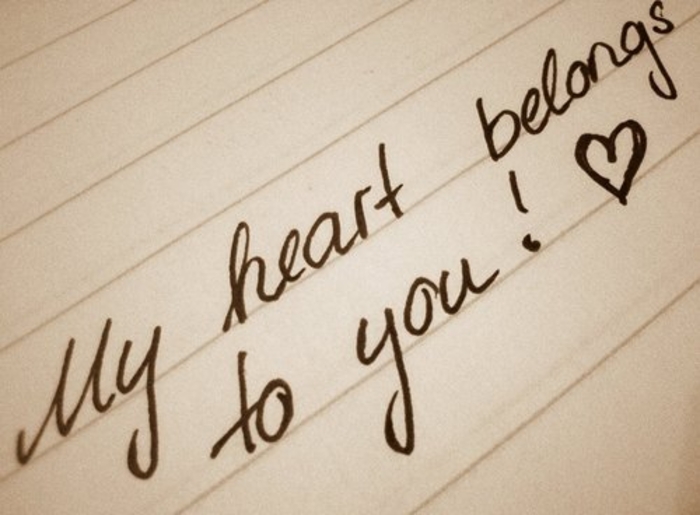 My heart belongs
to you! ♡